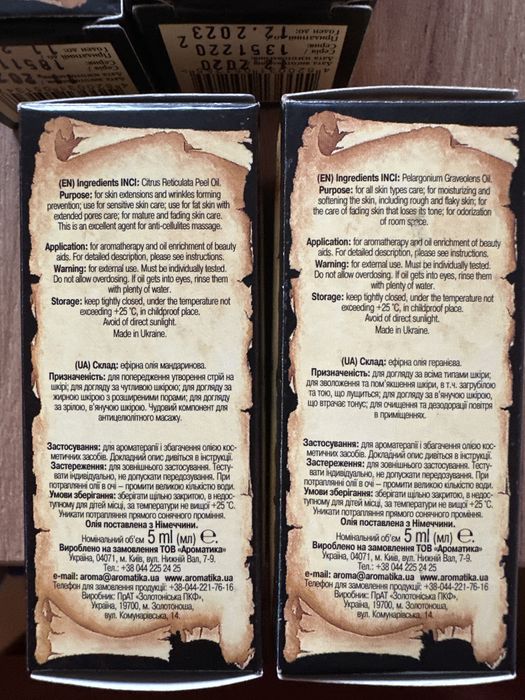 12.2023
1351220 2
Придатний до:
Серія:
(EN) Ingredients INCI: Citrus Reticulata Peel Oil.
Purpose: for skin extensions and wrinkles forming
prevention; use for sensitive skin care; use for fat skin with
extended pores care; for mature and fading skin care.
This is an excellent agent for anti-cellulites massage.
Application: for aromatherapy and oil enrichment of beauty
aids. For detailed description, please see instructions.
Warning: for external use. Must be individually tested.
Do not allow overdosing. If oil gets into eyes, rinse them
with plenty of water.
Storage: keep tightly closed, under the temperature not
exceeding +25 °C, in childproof place.
Avoid of direct sunlight.
Made in Ukraine.
(UA) Склад: ефірна олія мандаринова.
Призначеність: для попередження утворення стрій на
шкірі; для догляду за чутливою шкірою; для догляду за
жирною шкірою з розширеними порами; для догляду
за зрілою, в'янучою шкірою. Чудовий компонент для
антицелюлітного масажу.
Застосування: для ароматерапії і збагачення олією кос-
метичних засобів. Докладний опис дивіться в інструкції.
Застереження: для зовнішнього застосування. Тесту-
вати індивідуально, не допускати передозування. При
потраплянні олії в очі – промити великою кількістю води.
Умови зберігання: зберігати щільно закритою, в недос-
тупному для дітей місці, за температури не вищої +25 °С.
Уникати потрапляння прямого сонячного проміння.
Олія поставлена з Німеччини.
Номінальний об'єм 5 ml (мл) ℮.
Вироблено на замовлення ТОВ «Ароматика»
Україна, 04071, м. Київ, вул. Нижній Вал, 7-9.
Тел.: +38 044 225 24 25
e-mail: aroma@aromatika.ua www.aromatika.ua
Телефон для замовлення продукції: +38-044-221-76-16
Виробник: ПрАТ «Золотоніська ПКФ»,
Україна, 19700, м. Золотоноша,
вул. Комунарівська, 14.
(EN) Ingredients INCI: Pelargonium Graveolens Oil.
Purpose: for all skin types care; for moisturizing and
softening the skin, including rough and flaky skin; for
the care of fading skin that loses its tone; for odorization
of room space.
Application: for aromatherapy and oil enrichment of beauty
aids. For detailed description, please see instructions.
Warning: for external use. Must be individually tested.
Do not allow overdosing. If oil gets into eyes, rinse them
with plenty of water.
Storage: keep tightly closed, under the temperature not
exceeding +25 °C, in childproof place.
Avoid of direct sunlight.
Made in Ukraine.
(UA) Склад: ефірна олія геранієва.
Призначеність: для догляду за всіма типами шкіри;
для зволоження та пом'якшення шкіри, в т.ч. загрубілою
та тою, що лущиться; для догляду за в'янучою шкірою,
що втрачає тонус; для очищення та дезодорації повітря
в приміщеннях.
Застосування: для ароматерапії і збагачення олією кос-
метичних засобів. Докладний опис дивіться в інструкції.
Застереження: для зовнішнього застосування. Тесту-
вати індивідуально, не допускати передозування. При
потраплянні олії в очі – промити великою кількістю води.
Умови зберігання: зберігати щільно закритою, в недос-
тупному для дітей місці, за температури не вищої +25 °С.
Уникати потрапляння прямого сонячного проміння.
Олія поставлена з Німеччини.
Номінальний об'єм 5 ml (мл) ℮.
Вироблено на замовлення ТОВ «Ароматика»
Україна, 04071, м. Київ, вул. Нижній Вал, 7-9.
Тел.: +38 044 225 24 25
e-mail: aroma@aromatika.ua www.aromatika.ua
Телефон для замовлення продукції: +38-044-221-76-16
Виробник: ПрАТ «Золотоніська ПКФ»,
Україна, 19700, м. Золотоноша,
вул. Комунарівська, 14.